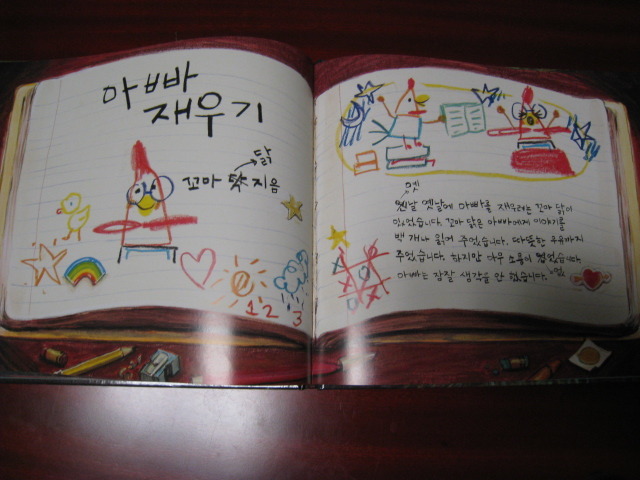 아빠
재우기
닭
꼬마 닥 지음
1 2 3
옛
옌날 옛날에 아빠를 재우려는 꼬마 닭이
있었습니다. 꼬마 닭은 아빠에게 이야기를
백 개나 읽어 주었습니다. 따뜻한 우유까지
주었습니다. 하지만 아무 소용이 없었습니다.
아빠는 잠잘 생각을 안 했습니다.